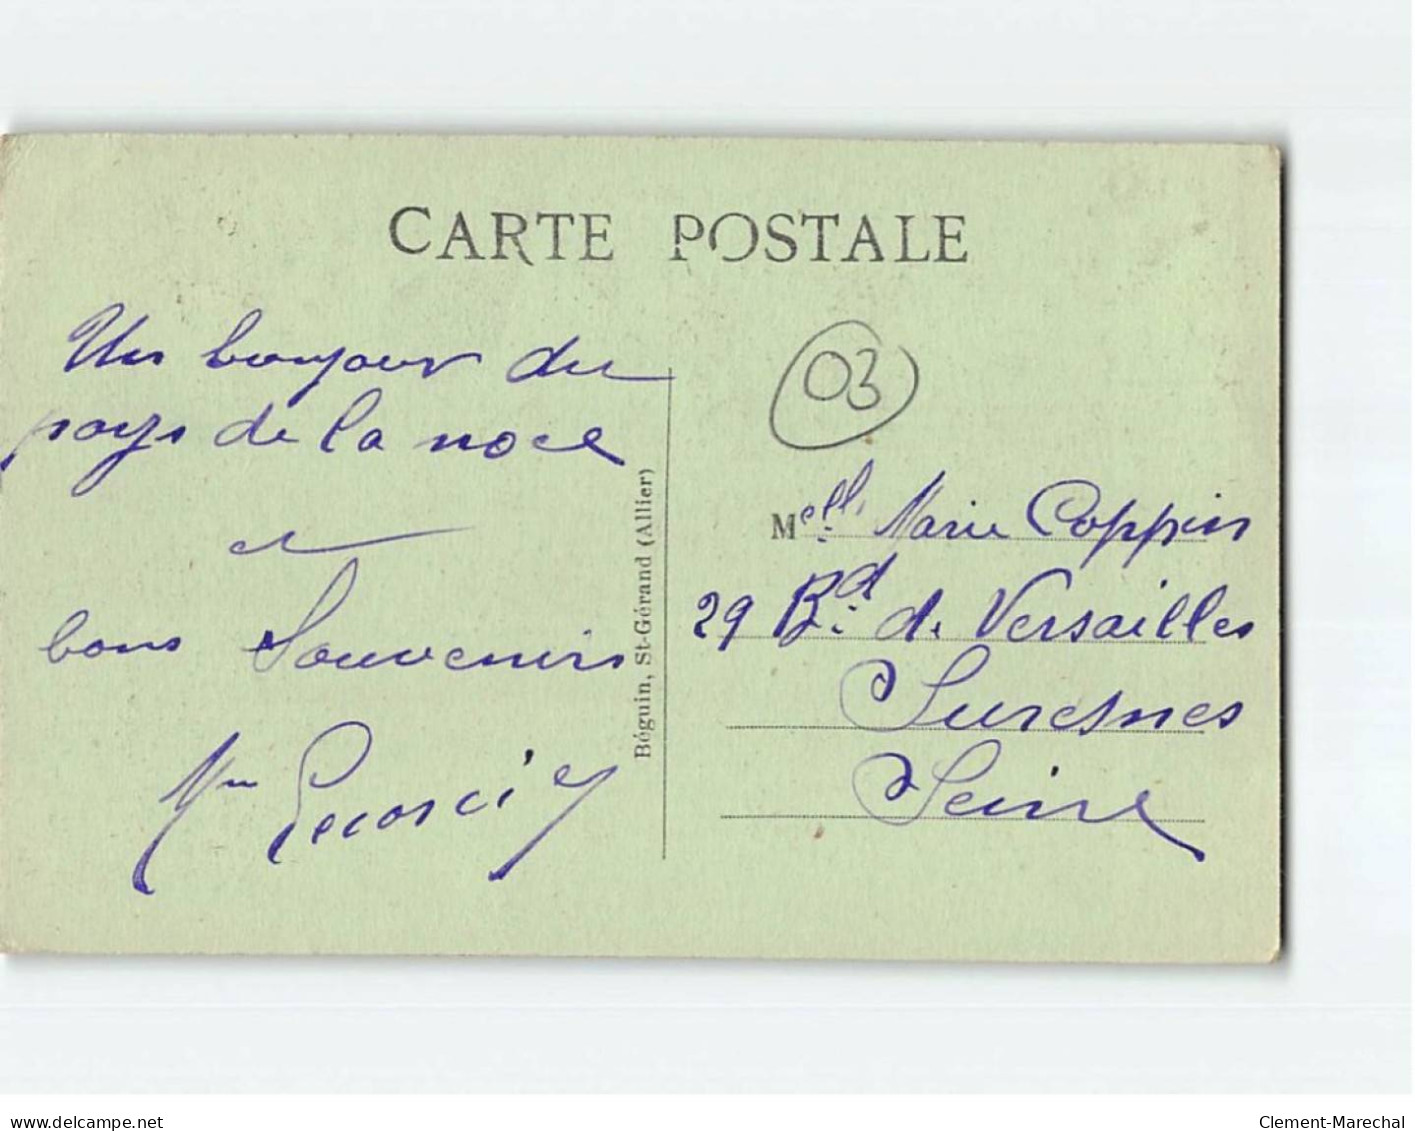 CARTE POSTALE
Un bonjour du
pays de la noce
et
bons Souvenirs
03
Melle Marie Coppin
29 Bd de Versailles
Suresnes
Seine
Béguin, St-Gérand (Allier)
www.delcampe.net
Clement-Marechal